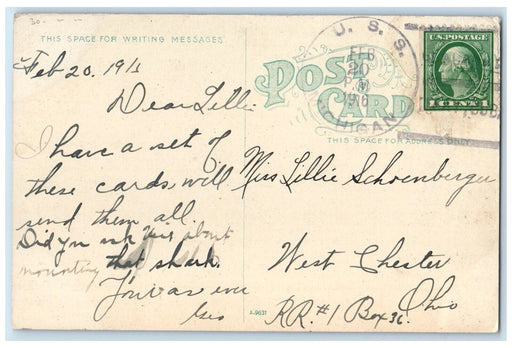 30- - -
THIS SPACE FOR WRITING MESSAGES
POST CARD
THIS SPACE FOR ADDRESS ONLY.
U. S. S.
FEB
20
1916
MICHIGAN
U.S. POSTAGE
1 CENT 1
Feb 20. 191
Dear Lillie
I have a set of
these cards will
send them all.
Did you ask about
mounting that shark.
Your as ever
Geo
Miss Lillie Schoenberger
West Chester
Ohio
RR. #1 Box 36.
A-9631